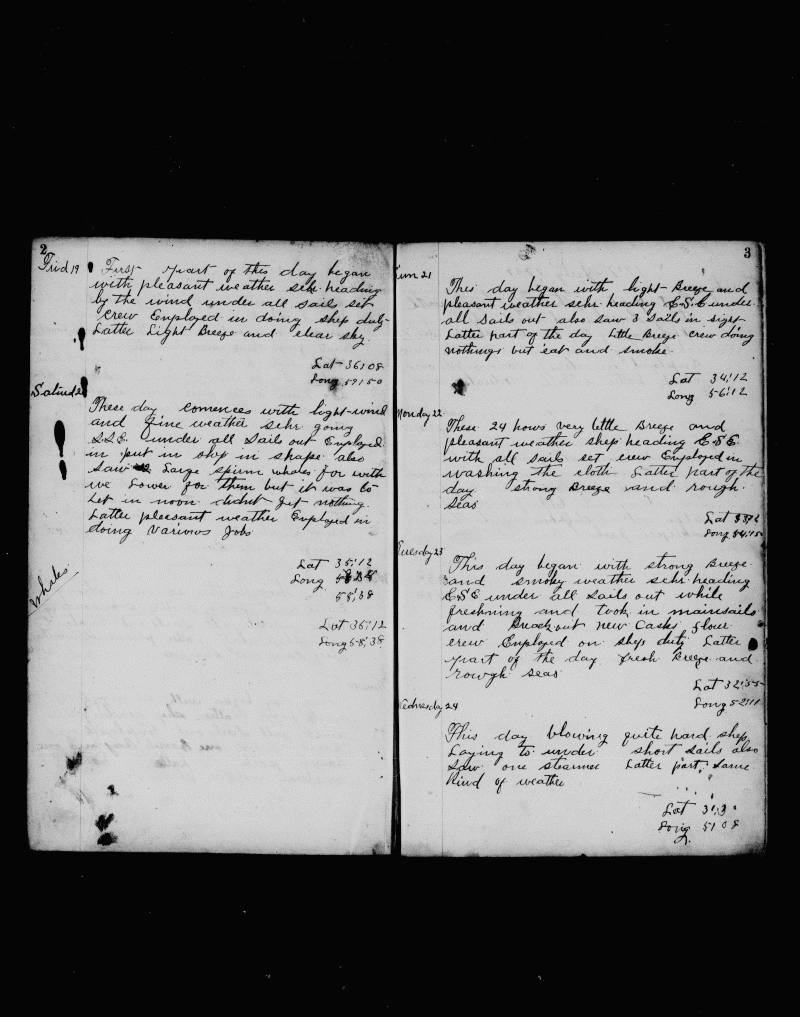 2
Frid 19
First part of this day began
with pleasant weather schr heading
by the wind under all sail set
crew Employed in doing ship duty
Latter Light Breeze and clear sky.
Lat 36:08
Long 59:50
Saturd 20
These day comences with light-wind
and fine weather schr going
S.S.E. under all Sails out Employed
in put in ship in shape also
Saw Large spirm whales for with
we Lower for them but it was to
Let in noon didnt get nothing.
Latter pleasant weather Employed in
doing Various Jobs
Whales.
Lat 35:12
Long
58:38
Lat 36:12
Long 58:38
3
Sun 21
This day began with light Breeze and
pleasant weather schr heading E.S.E under
all Sails out also saw 3 Sails in sight
Latter part of the day Little Breeze crew doing
nothings but eat and smoke
Lat 34:12
Long 56:12
Monday 22
These 24 hours very little Breeze and
pleasant weather ship heading E.S.E
with all sails set crew Employed in
washing the cloth Latter part of the
day strong Breeze and rough
Seas
Lat
Long 54:15
Tuesday 23
This day began with strong Breeze
and smoky weather schr heading
E.S.E under all Sails out while
freshning and took in mainsails
and Breackout new Casks flour
crew Employed on ship duty Latter
part of the day fresh Breeze and
rowgh seas
Lat 32:55
Long 52:11
Wednesday 24
This day blowing quite hard ship
Laying to under short sails also
Saw one steamer Latter part Same
Kind of weather
Lat 31:3
Long 51 08